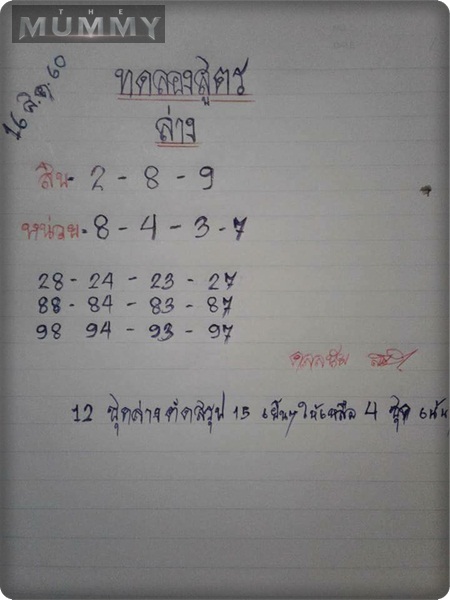 THE
MUMMY
16 ส.ค. 60
ทดลองสูตร
ล่าง
สิบ - 2 - 8 - 9
หน่วย - 8 - 4 - 3 - 7
28 - 24 - 23 - 27
88 - 84 - 83 - 87
98 94 - 93 - 97
12 ชุดล่างตัดสรุป 15 เย็นๆ ให้เหลือ 4 ชุด เน้น